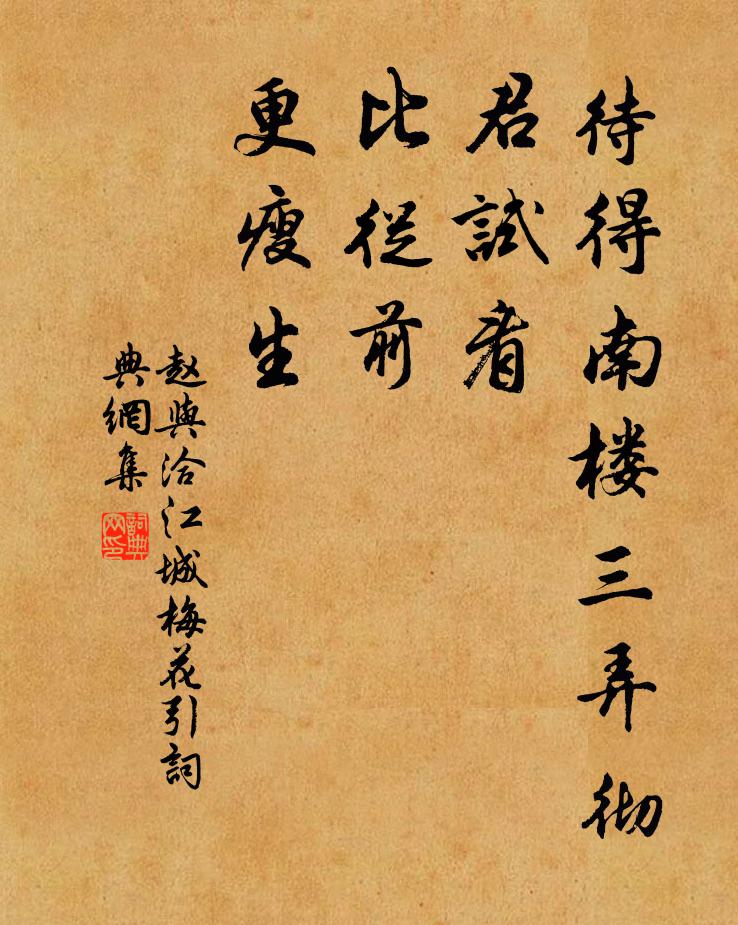 待得南楼三弄彻
君試看
比從前
更瘦生
赵與洽江城梅花引詞
典網集
詞典
网印